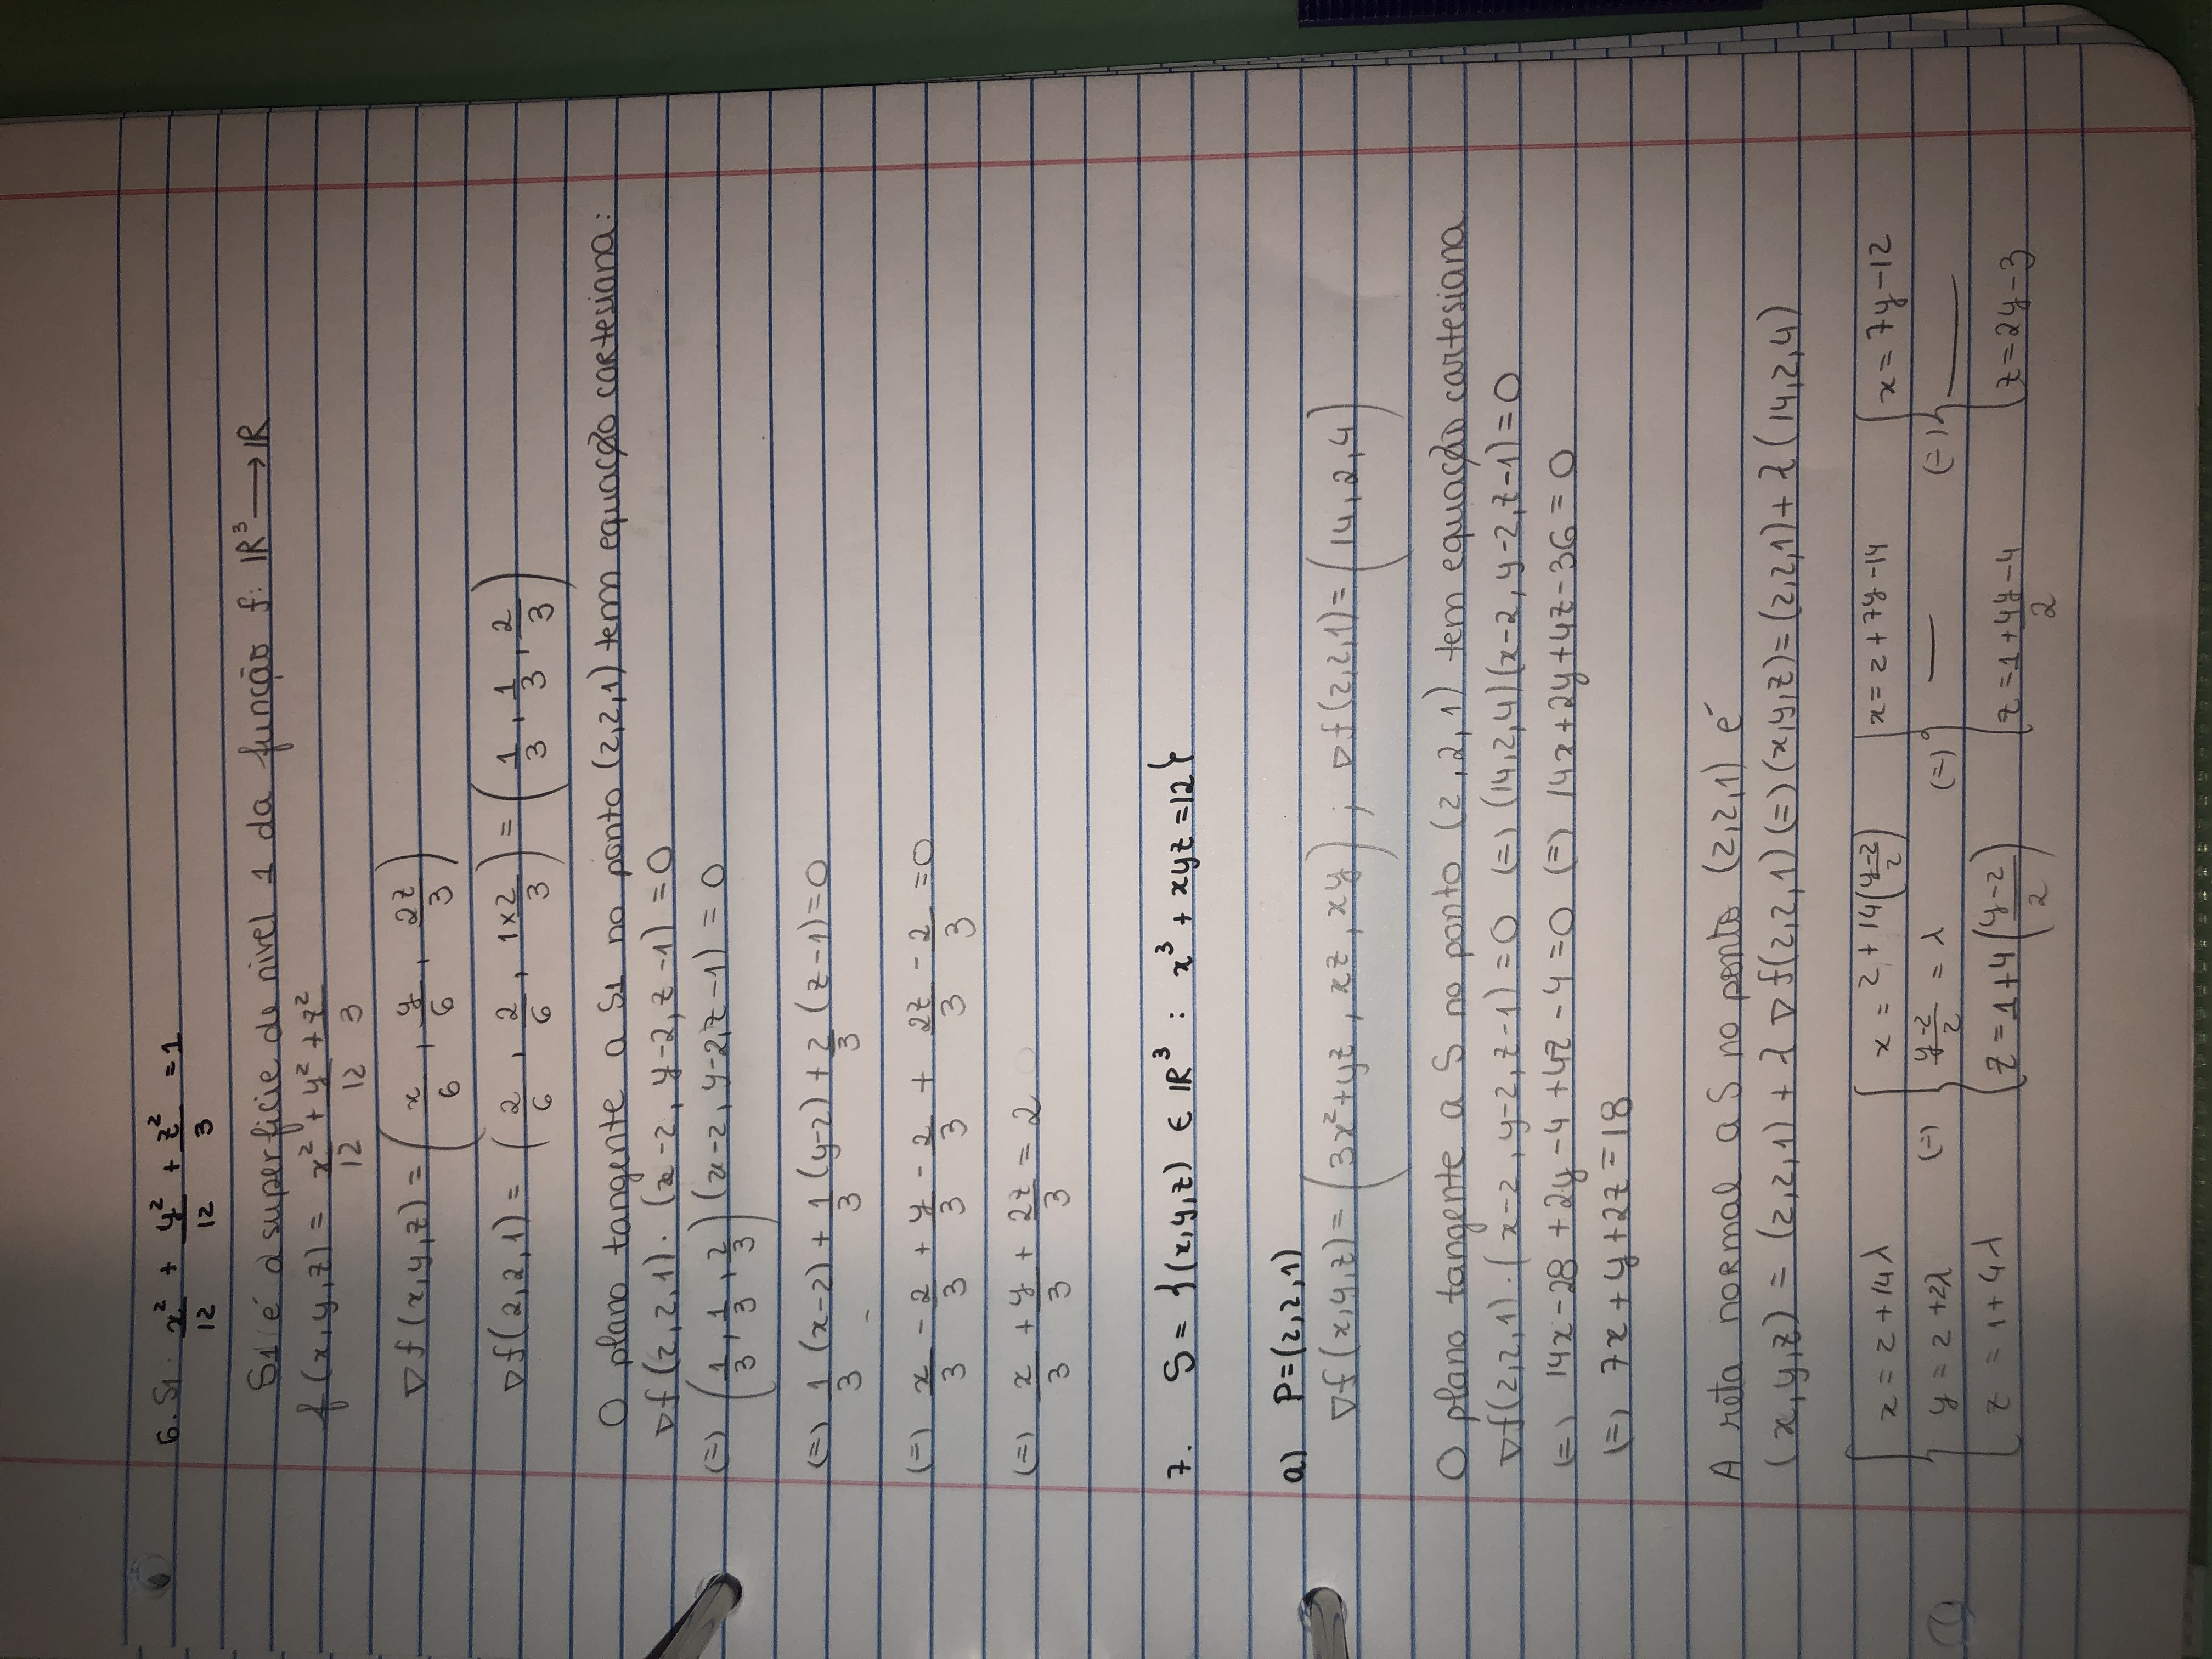 6. S1. x²/12 + y²/12 + z²/3 = 1
S1 é a superficie de nivel 1 da função f: ℝ³ → ℝ
f(x,y,z) = x²/12 + y²/12 + z²/3
∇f(x,y,z) = (x/6, y/6, 2z/3)
∇f(2,2,1) = (2/6, 2/6, 1×2/3) = (1/3, 1/3, 2/3)
O plano tangente a S1 no ponto (2,2,1) tem equação cartesiana:
∇f(2,2,1)·(x-2, y-2, z-1) = 0
(=) (1/3, 1/3, 2/3) (x-2, y-2, z-1) = 0
(=) 1/3 (x-2) + 1/3 (y-2) + 2/3 (z-1) = 0
(=) x/3 - 2/3 + y/3 - 2/3 + 2z/3 - 2/3 = 0
(=) x/3 + y/3 + 2z/3 = 2
7. S = {(x,y,z) ∈ ℝ³ : x³ + xyz = 12}
a) P=(2,2,1)
∇f(x,y,z) = (3x²+yz, xz, xy) ; ∇f(2,2,1) = (14,2,4)
O plano tangente a S no ponto (2,2,1) tem equação cartesiana
∇f(2,2,1)·(x-2, y-2, z-1) = 0 (=) (14,2,4)(x-2, y-2, z-1) = 0
(=) 14x-28+2y-4+4z-4=0 (=) 14x+2y+4z-36=0
(=) 7x+y+2z=18
A reta normal a S no ponto (2,2,1) é
(x,y,z) = (2,2,1) + λ∇f(2,2,1) (=) (x,y,z) = (2,2,1) + λ(14,2,4)
{ x = 2+14λ { x = 2+14((y-2)/2) { x = 2+7y-14 { x = 7y-12
y = 2+2λ (=) (y-2)/2 = λ (=) — (=) —
z = 1+4λ z = 1+4((y-2)/2) z = 1+(4y-4)/2 z = 2y-3